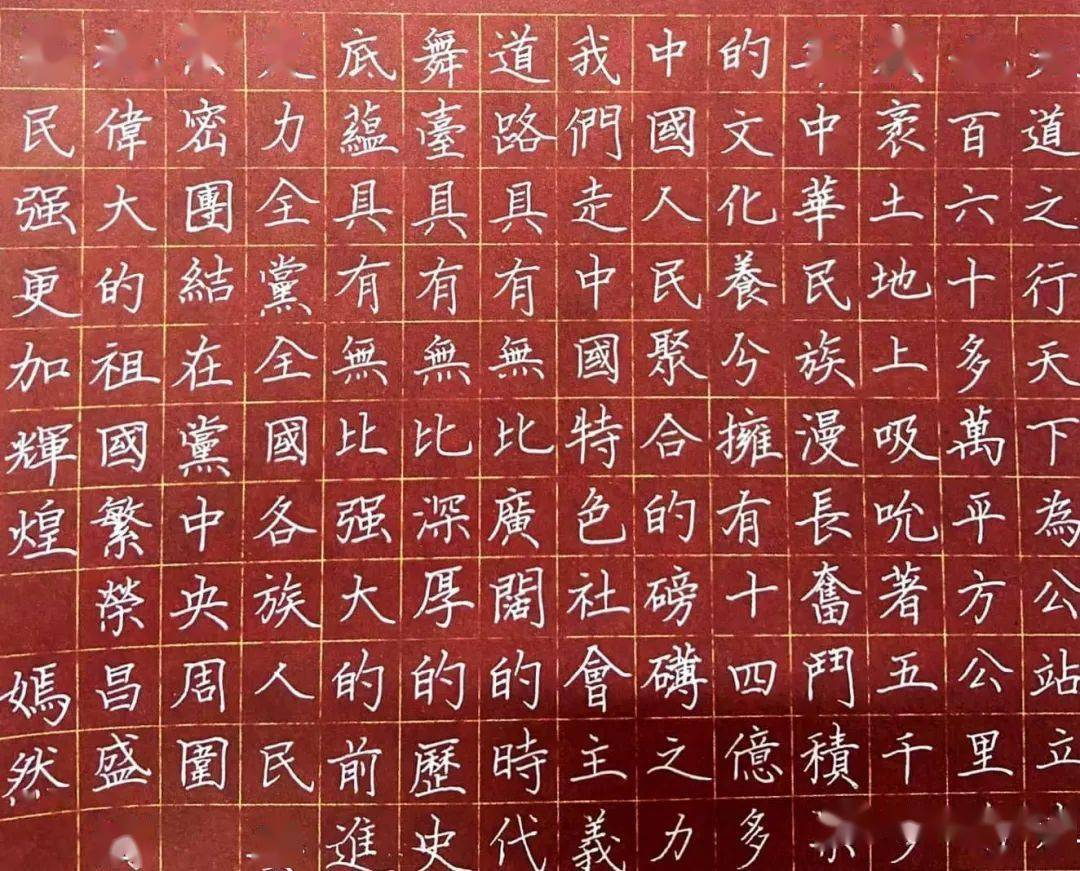 道之行天下為公站立
百六十多萬平方公里
袤土地上吸吮著五千
中華民族漫長奮鬥積
的文化養兮擁有十四億多
中國人民聚合的磅礴之力
我們走中國特色社會主義
道路具有無比廣闊的時代
舞臺具有無比深厚的歷史
底蘊具有無比强大的前進
力全黨全國各族人民
密團結在黨中央周圍
偉大的祖國繁榮昌盛
民强更加輝煌 嫣然